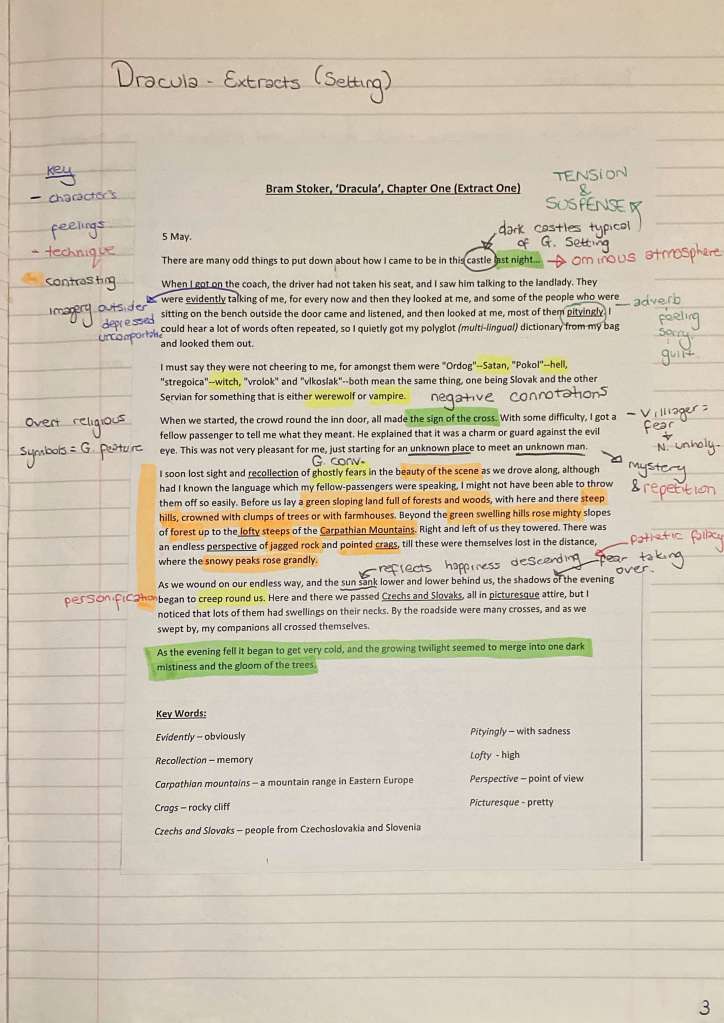 Dracula - Extracts (Setting)
Key
- character's
feelings
- technique
- contrasting
imagery
outsider
depressed
uncomfortable
TENSION
&
SUSPENSE
Bram Stoker, 'Dracula', Chapter One (Extract One)
dark castles typical
of G. Setting
5 May.
There are many odd things to put down about how I came to be in this castle last night... → ominous atmosphere
When I got on the coach, the driver had not taken his seat, and I saw him talking to the landlady. They
were evidently talking of me, for every now and then they looked at me, and some of the people who were
sitting on the bench outside the door came and listened, and then looked at me, most of them pityingly. I
could hear a lot of words often repeated, so I quietly got my polyglot (multi-lingual) dictionary from my bag
and looked them out.
- adverb
feeling
sorry
guilt
I must say they were not cheering to me, for amongst them were "Ordog"--Satan, "Pokol"--hell,
"stregoica"--witch, "vrolok" and "vlkoslak"--both mean the same thing, one being Slovak and the other
Servian for something that is either werewolf or vampire.
negative connotations
When we started, the crowd round the inn door, all made the sign of the cross. With some difficulty, I got a
fellow passenger to tell me what they meant. He explained that it was a charm or guard against the evil
eye. This was not very pleasant for me, just starting for an unknown place to meet an unknown man.
Overt religious
symbols = G. feature
- Villiager =
fear
N. unholy
mystery
& repetition
G. conv.
I soon lost sight and recollection of ghostly fears in the beauty of the scene as we drove along, although
had I known the language which my fellow-passengers were speaking, I might not have been able to throw
them off so easily. Before us lay a green sloping land full of forests and woods, with here and there steep
hills, crowned with clumps of trees or with farmhouses. Beyond the green swelling hills rose mighty slopes
of forest up to the lofty steeps of the Carpathian Mountains. Right and left of us they towered. There was
an endless perspective of jagged rock and pointed crags, till these were themselves lost in the distance,
where the snowy peaks rose grandly.
pathetic fallacy
reflects happiness descending - fear taking
over.
As we wound on our endless way, and the sun sank lower and lower behind us, the shadows of the evening
began to creep round us. Here and there we passed Czechs and Slovaks, all in picturesque attire, but I
noticed that lots of them had swellings on their necks. By the roadside were many crosses, and as we
swept by, my companions all crossed themselves.
personification
As the evening fell it began to get very cold, and the growing twilight seemed to merge into one dark
mistiness and the gloom of the trees.
Key Words:
Evidently – obviously
Recollection – memory
Carpathian mountains – a mountain range in Eastern Europe
Crags – rocky cliff
Czechs and Slovaks – people from Czechoslovakia and Slovenia
Pityingly – with sadness
Lofty - high
Perspective – point of view
Picturesque - pretty
3